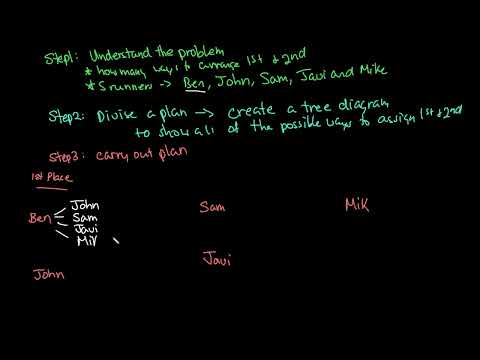 Step1: Understand the problem
* how many ways to arrange 1st & 2nd
* 5 runners -> Ben, John, Sam, Javi and Mike
Step2: Divise a plan -> create a tree diagram
to show all of the possible ways to assign 1st & 2nd
Step3: carry out plan
1st Place
Ben
John
Sam
Javi
Mik
Sam
Mik
Javi
John